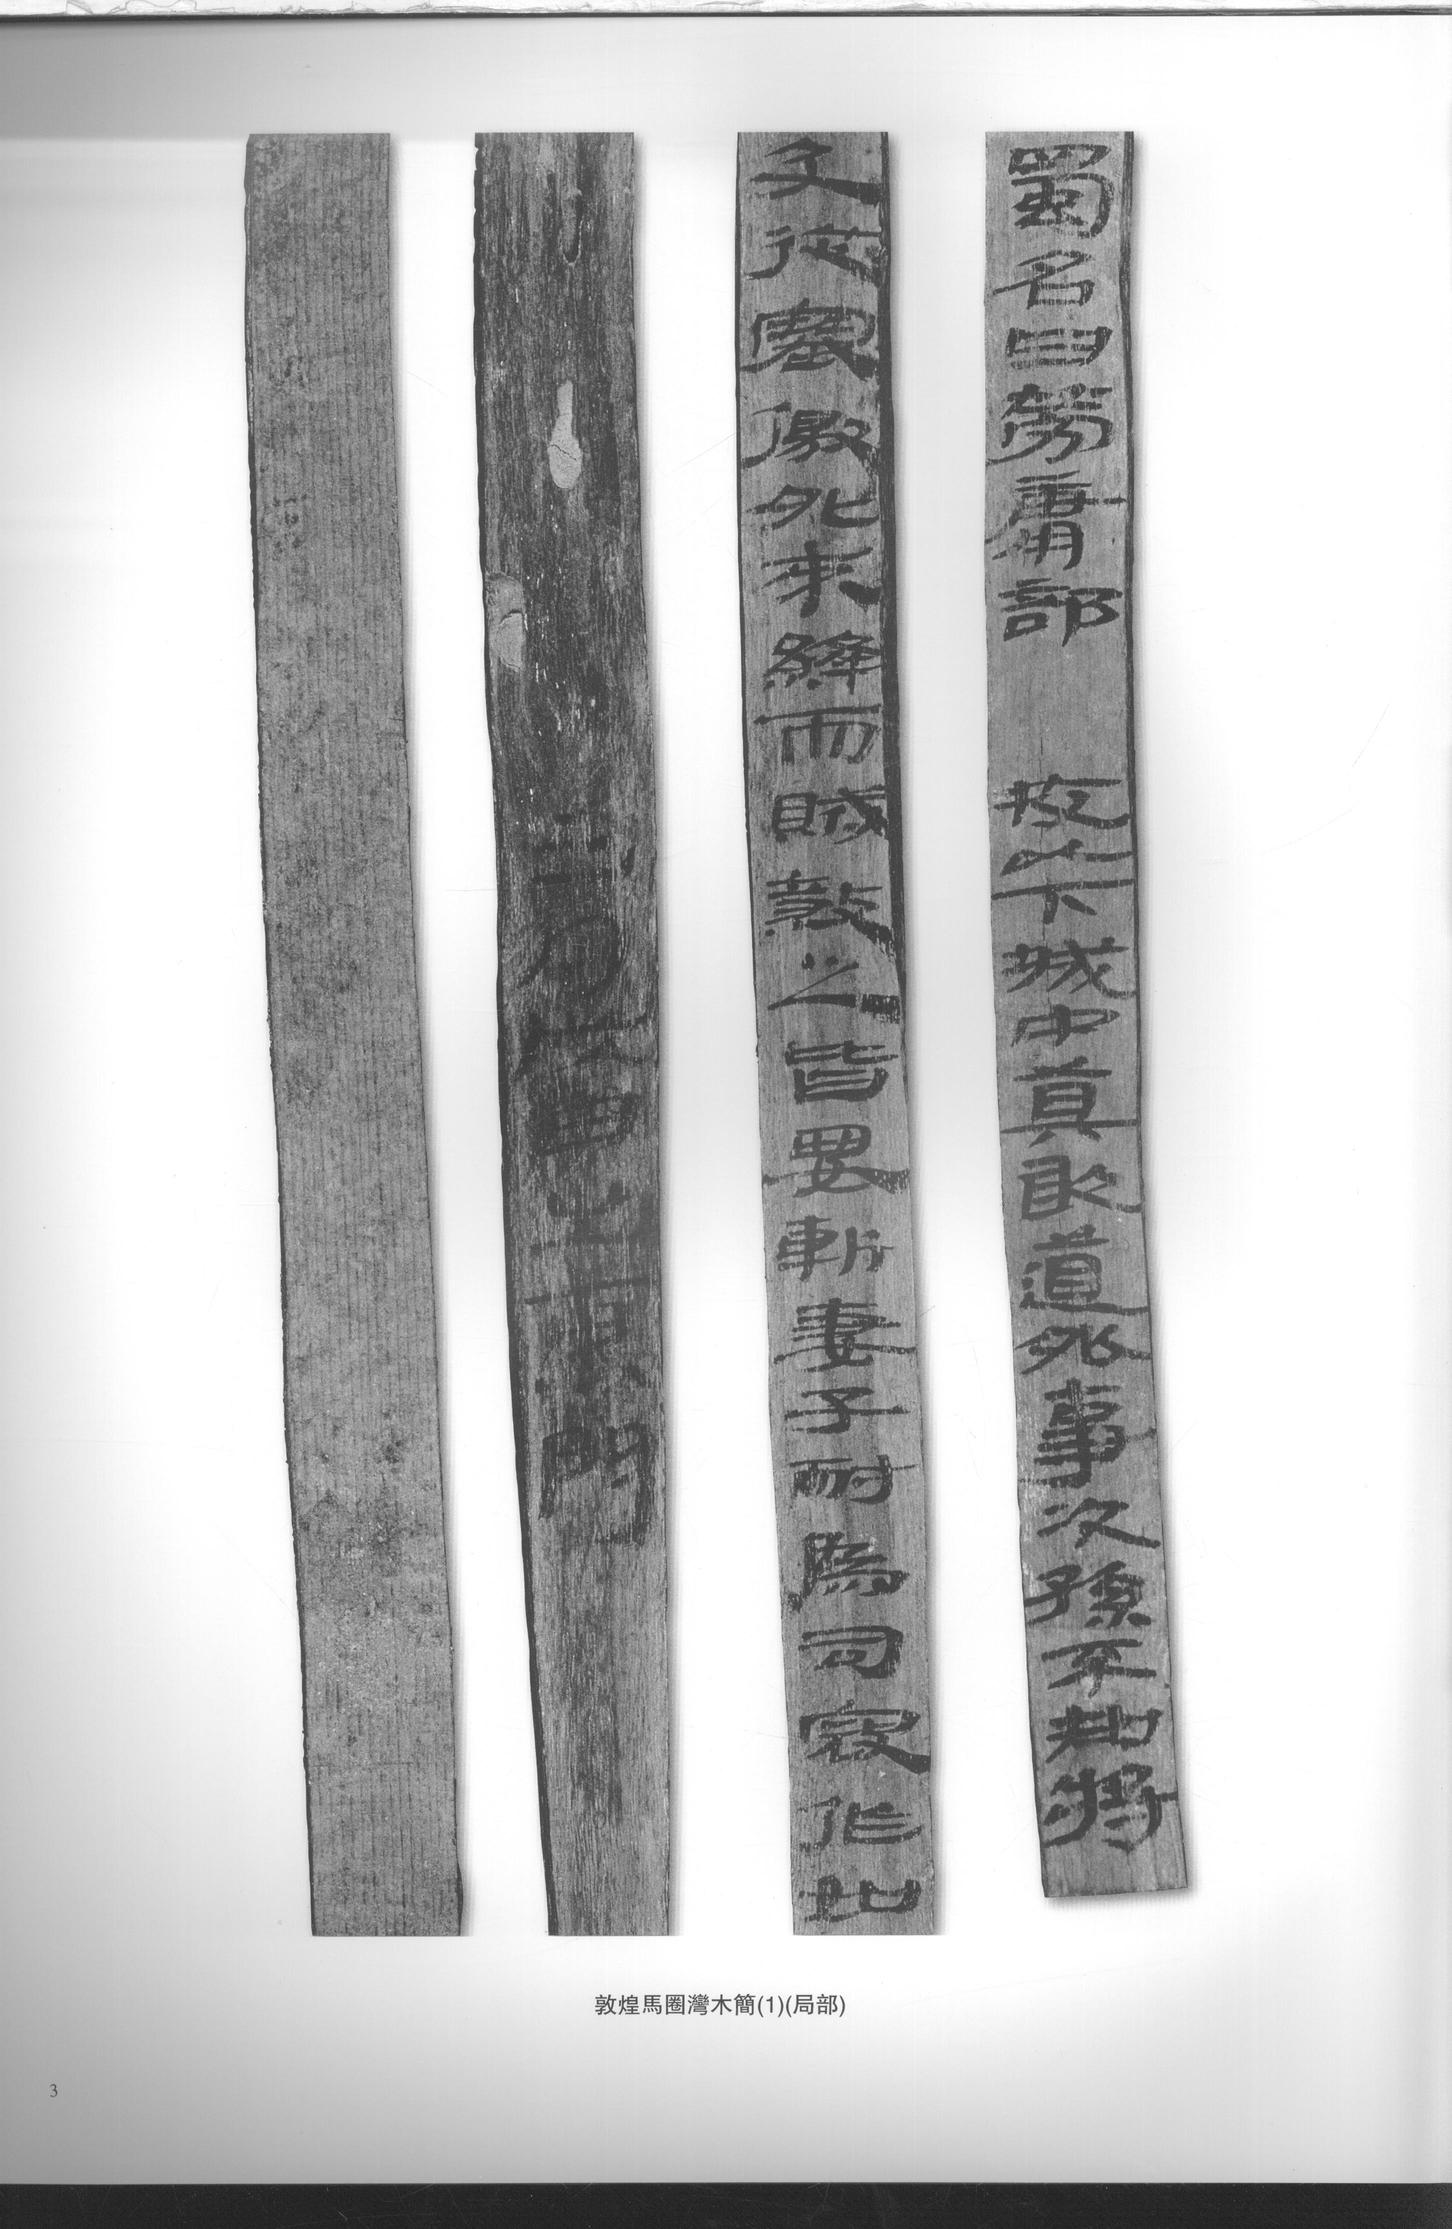 蜀名曰勞庸部　校以下城中莫敢道外事次孫不知將
及從塞徼外來絳而賊殺之皆要斬妻子耐為司寇作如
敦煌馬圈灣木簡(1)(局部)
3